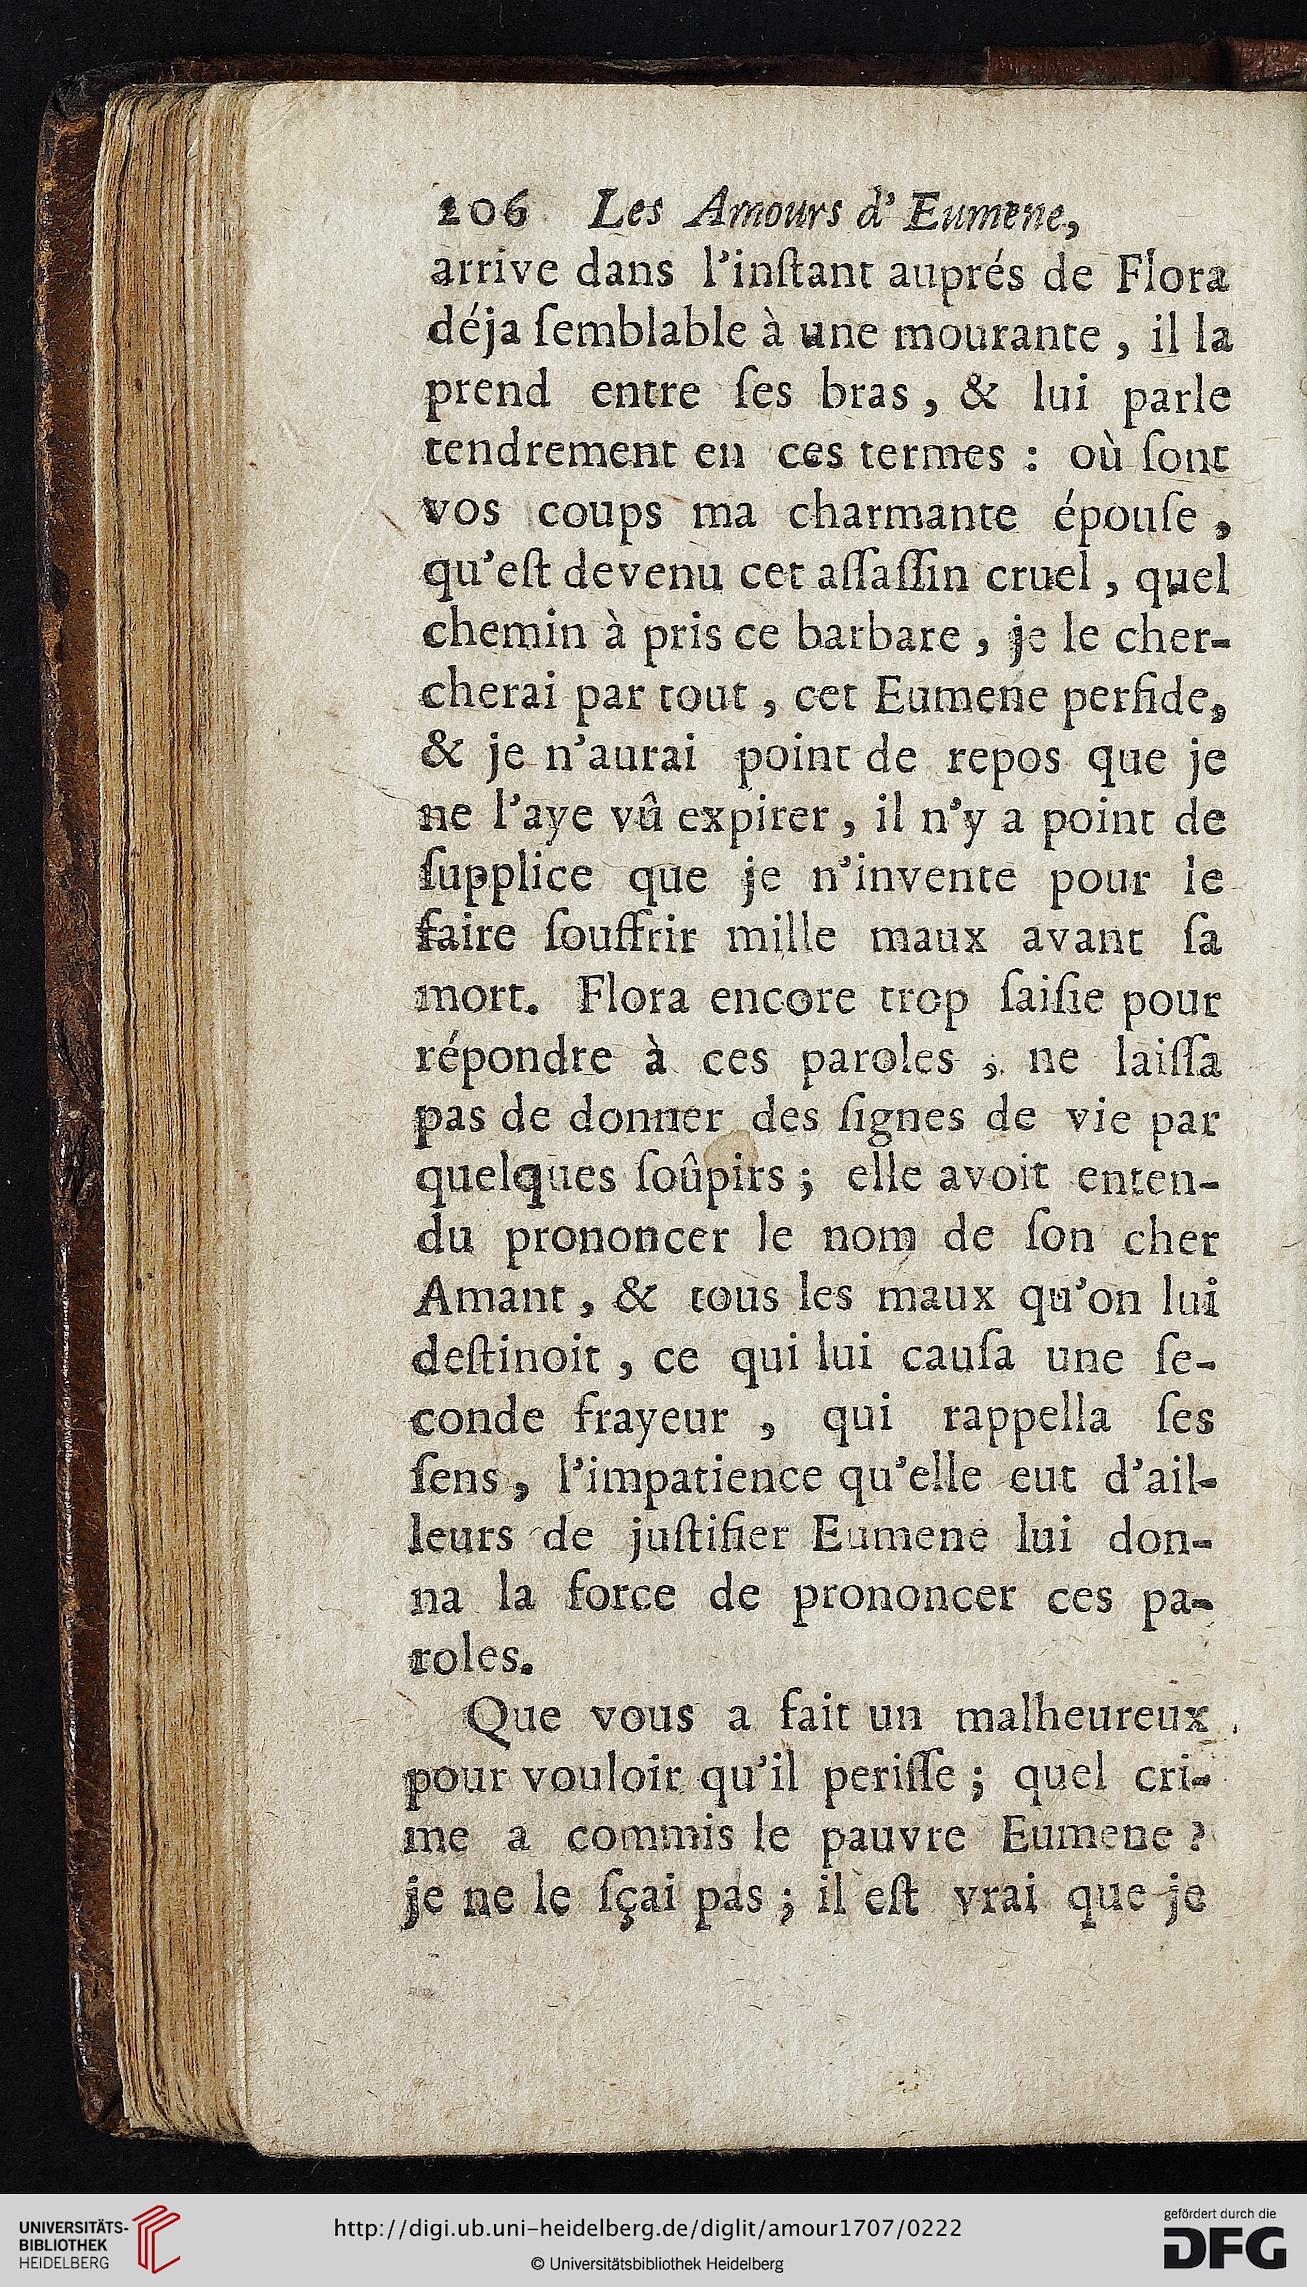 206 Les Amours d'Eumene,
arrive dans l'inſtant auprés de Flora
déja ſemblable à une mourante , il la
prend entre ſes bras , & lui parle
tendrement en ces termes : où ſont
vos coups ma charmante épouſe ,
qu'eſt devenu cet aſſaſſin cruel , quel
chemin à pris ce barbare , je le cher-
cherai par tout , cet Eumene perfide,
& je n'aurai point de repos que je
ne l'aye vû expirer , il n'y a point de
ſupplice que je n'invente pour le
faire ſouffrir mille maux avant ſa
mort. Flora encore trop ſaiſie pour
répondre à ces paroles , ne laiſſa
pas de donner des ſignes de vie par
quelques ſoûpirs ; elle avoit enten-
du prononcer le nom de ſon cher
Amant , & tous les maux qu'on lui
deſtinoit , ce qui lui cauſa une ſe-
conde frayeur , qui rappella ſes
ſens , l'impatience qu'elle eut d'ail-
leurs de juſtifier Eumene lui don-
na la force de prononcer ces pa-
roles.
Que vous a fait un malheureux
pour vouloir qu'il periſſe ; quel cri-
me a commis le pauvre Eumene ?
je ne le ſçai pas ; il eſt vrai que je
UNIVERSITÄTS-
BIBLIOTHEK
HEIDELBERG
http://digi.ub.uni-heidelberg.de/diglit/amour1707/0222
© Universitätsbibliothek Heidelberg
gefördert durch die
DFG